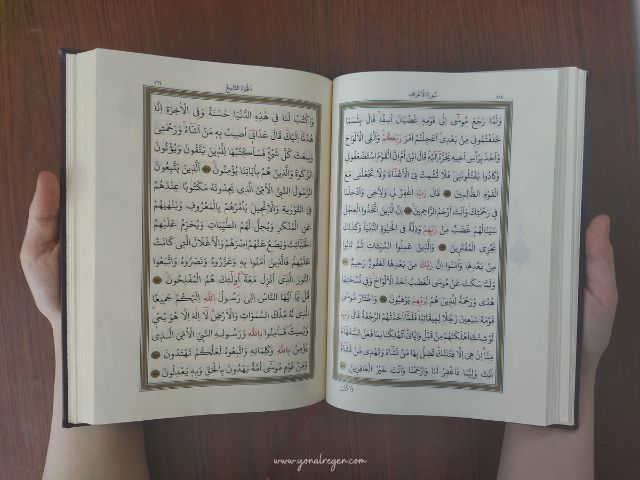 سُورَةُ الْأَعْرَافِ ١٦٨
وَلَمَّا رَجَعَ مُوسَىٰ إِلَىٰ قَوْمِهِ غَضْبَانَ أَسِفًا قَالَ بِئْسَمَا
خَلَفْتُمُونِي مِنْ بَعْدِي أَعَجِلْتُمْ أَمْرَ رَبِّكُمْ وَأَلْقَى الْأَلْوَاحَ
وَأَخَذَ بِرَأْسِ أَخِيهِ يَجُرُّهُ إِلَيْهِ قَالَ ابْنَ أُمَّ إِنَّ الْقَوْمَ اسْتَضْعَفُونِي
وَكَادُوا يَقْتُلُونَنِي فَلَا تُشْمِتْ بِيَ الْأَعْدَاءَ وَلَا تَجْعَلْنِي مَعَ
الْقَوْمِ الظَّالِمِينَ قَالَ رَبِّ اغْفِرْ لِي وَلِأَخِي وَأَدْخِلْنَا
فِي رَحْمَتِكَ وَأَنْتَ أَرْحَمُ الرَّاحِمِينَ إِنَّ الَّذِينَ اتَّخَذُوا الْعِجْلَ
سَيَنَالُهُمْ غَضَبٌ مِنْ رَبِّهِمْ وَذِلَّةٌ فِي الْحَيٰوةِ الدُّنْيَا وَكَذٰلِكَ
نَجْزِي الْمُفْتَرِينَ وَالَّذِينَ عَمِلُوا السَّيِّئَاتِ ثُمَّ تَابُوا
مِنْ بَعْدِهَا وَآمَنُوا إِنَّ رَبَّكَ مِنْ بَعْدِهَا لَغَفُورٌ رَحِيمٌ
وَلَمَّا سَكَتَ عَنْ مُوسَى الْغَضَبُ أَخَذَ الْأَلْوَاحَ وَفِي نُسْخَتِهَا
هُدًى وَرَحْمَةٌ لِلَّذِينَ هُمْ لِرَبِّهِمْ يَرْهَبُونَ وَاخْتَارَ مُوسَىٰ
قَوْمَهُ سَبْعِينَ رَجُلًا لِمِيقَاتِنَا فَلَمَّا أَخَذَتْهُمُ الرَّجْفَةُ قَالَ رَبِّ
لَوْ شِئْتَ أَهْلَكْتَهُمْ مِنْ قَبْلُ وَإِيَّايَ أَتُهْلِكُنَا بِمَا فَعَلَ السُّفَهَاءُ
مِنَّا إِنْ هِيَ إِلَّا فِتْنَتُكَ تُضِلُّ بِهَا مَنْ تَشَاءُ وَتَهْدِي مَنْ تَشَاءُ
أَنْتَ وَلِيُّنَا فَاغْفِرْ لَنَا وَارْحَمْنَا وَأَنْتَ خَيْرُ الْغَافِرِينَ
وَاكْتُبْ
اَلْجُزْءُ التَّاسِعُ ١٦٩
وَاكْتُبْ لَنَا فِي هٰذِهِ الدُّنْيَا حَسَنَةً وَفِي الْآخِرَةِ إِنَّا
هُدْنَا إِلَيْكَ قَالَ عَذَابِي أُصِيبُ بِهِ مَنْ أَشَاءُ وَرَحْمَتِي
وَسِعَتْ كُلَّ شَيْءٍ فَسَأَكْتُبُهَا لِلَّذِينَ يَتَّقُونَ وَيُؤْتُونَ
الزَّكٰوةَ وَالَّذِينَ هُمْ بِآيَاتِنَا يُؤْمِنُونَ اَلَّذِينَ يَتَّبِعُونَ
الرَّسُولَ النَّبِيَّ الْأُمِّيَّ الَّذِي يَجِدُونَهُ مَكْتُوبًا عِنْدَهُمْ
فِي التَّوْرٰيةِ وَالْإِنْجِيلِ يَأْمُرُهُمْ بِالْمَعْرُوفِ وَيَنْهٰيهُمْ
عَنِ الْمُنْكَرِ وَيُحِلُّ لَهُمُ الطَّيِّبَاتِ وَيُحَرِّمُ عَلَيْهِمُ
الْخَبَائِثَ وَيَضَعُ عَنْهُمْ إِصْرَهُمْ وَالْأَغْلَالَ الَّتِي كَانَتْ
عَلَيْهِمْ فَالَّذِينَ آمَنُوا بِهِ وَعَزَّرُوهُ وَنَصَرُوهُ وَاتَّبَعُوا
النُّورَ الَّذِي أُنْزِلَ مَعَهُ أُولٰئِكَ هُمُ الْمُفْلِحُونَ
قُلْ يَا أَيُّهَا النَّاسُ إِنِّي رَسُولُ اللّٰهِ إِلَيْكُمْ جَمِيعًا
الَّذِي لَهُ مُلْكُ السَّمٰوَاتِ وَالْأَرْضِ لَا إِلٰهَ إِلَّا هُوَ يُحْيِي
وَيُمِيتُ فَآمِنُوا بِاللّٰهِ وَرَسُولِهِ النَّبِيِّ الْأُمِّيِّ الَّذِي
يُؤْمِنُ بِاللّٰهِ وَكَلِمَاتِهِ وَاتَّبِعُوهُ لَعَلَّكُمْ تَهْتَدُونَ
وَمِنْ قَوْمِ مُوسَىٰ أُمَّةٌ يَهْدُونَ بِالْحَقِّ وَبِهِ يَعْدِلُونَ
www.yonalregen.com